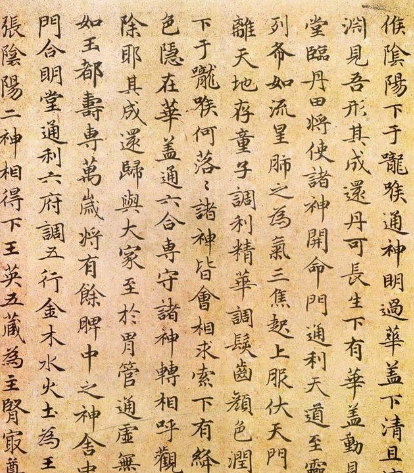 候陰陽下于嚨喉通神明過華蓋下清且
淵見吾形其成還丹可長生下有華蓋動見
堂臨丹田將使諸神開命門通利天道至靈
列布如流星肺之為氣三焦起上服伏天門
離天地存童子調利精華調髮齒顏色潤
下于嚨喉何落〻諸神皆會相求索下有絳
色隱在華蓋通六合專守諸神轉相呼觀
除耶其成還歸與大家至於胃管通虛無
如玉都壽專萬歲將有餘脾中之神舍中
門合明堂通利六府調五行金木水火土為王
張陰陽二神相得下玉英五藏為主腎最尊